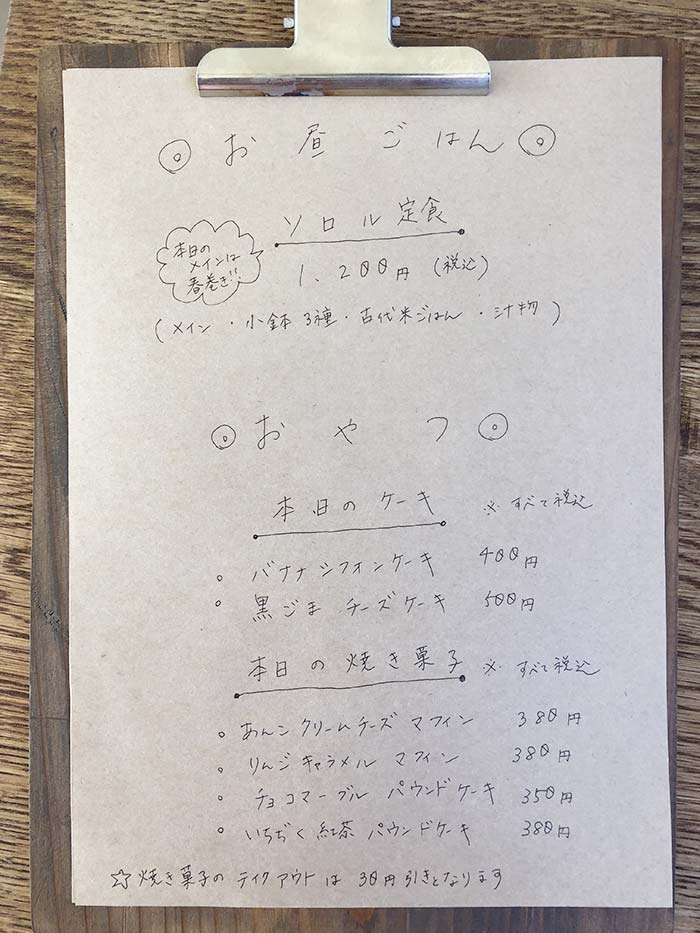 ◎ お昼ごはん ◎
ソロル定食
本日の
メインは
春巻き!!
1,200円 (税込)
(メイン・小鉢3種・古代米ごはん・汁物)
◎ おやつ ◎
本日のケーキ ※すべて税込
○ バナナシフォンケーキ 400円
○ 黒ごまチーズケーキ 500円
本日の焼き菓子 ※すべて税込
○ あんこクリームチーズマフィン 380円
○ りんごキャラメルマフィン 380円
○ チョコマーブルパウンドケーキ 350円
○ いちぢく紅茶パウンドケーキ 380円
☆焼き菓子のテイクアウトは30円引きとなります